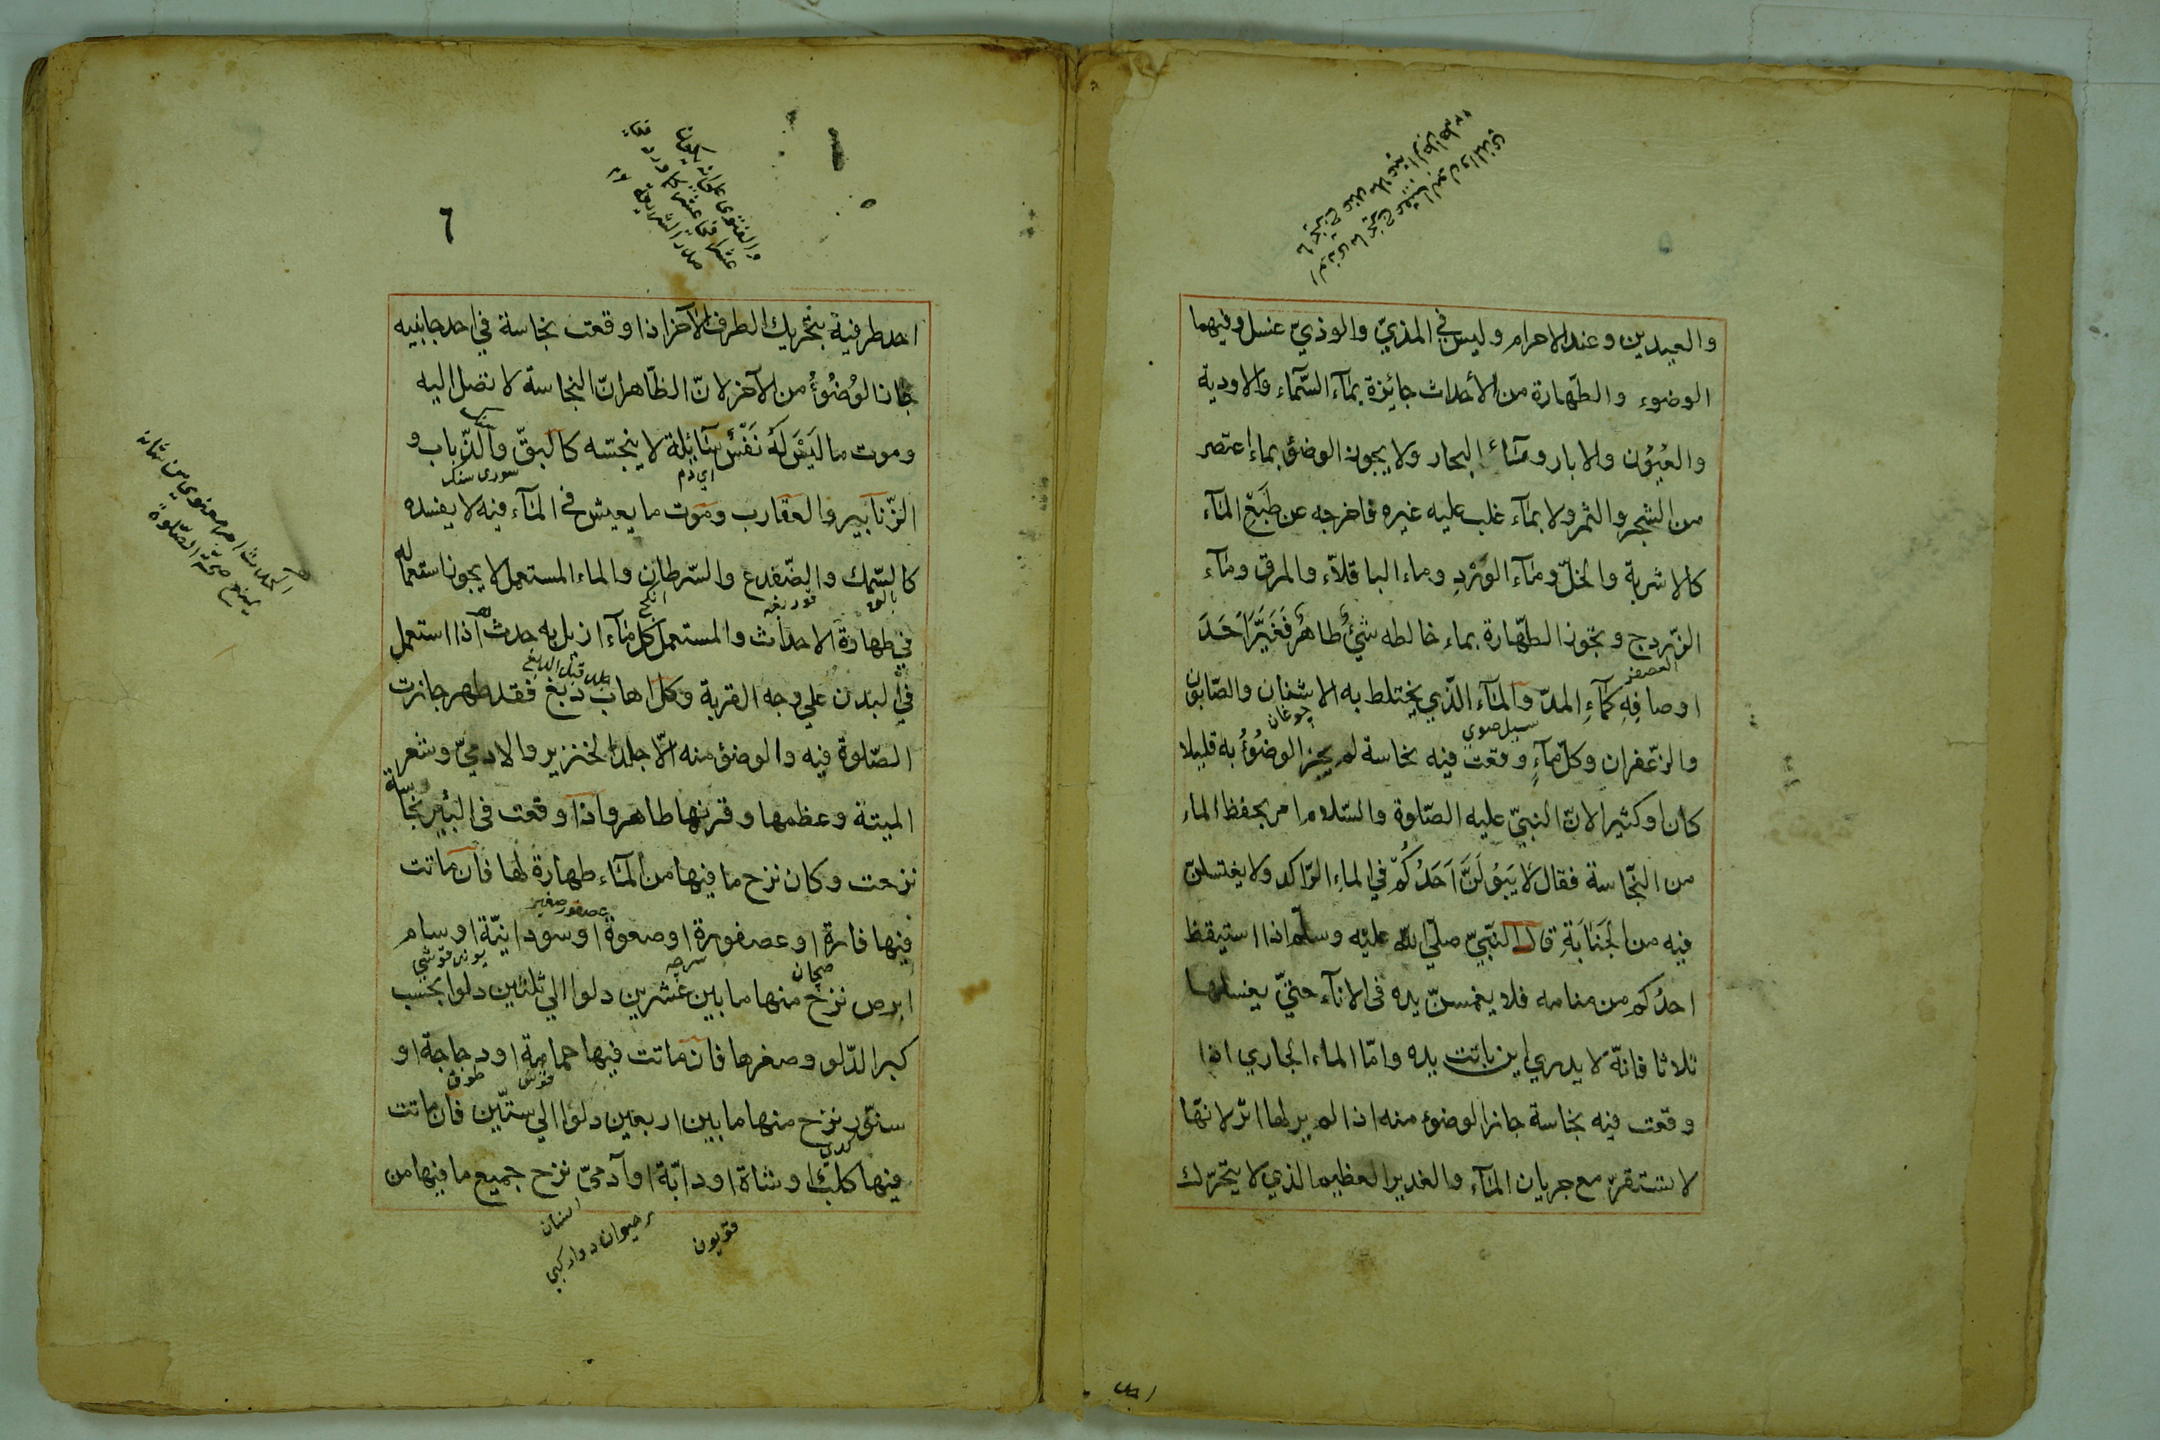 والعيدين وعند الاحرام وليس في المذيّ والوذيّ غسل وفيهما
الوضوء والطّهارة من الأحداث جائزة بمآء السّمآء والاودية
والعُيُوْن والابار ومَآء البحار ولا يجوز الوضؤ بماء اعتصر
من الشجر والثمر ولا بمآء غلب عليه غيره فاخرجه عن طَبْعِ المآء
كالاشربة والخلّ ومآء الوَرْدِ وماء الباقلآء والمرق ومآء
الزّردج وتجوز الطّهارة بماء خالطه شيْءٌ طاهرٌ فَغَيَّرَ اَحَدَ
العصفر
اوصافِهِ كمَآءِ المدّ والمآء الّذي يختلط به الاشنان والصّابون
سيل صوي چوغان
والزّعفران وكلّ مآءٍ وقعت فيه نجاسة لم يجز الوضُوْءُ به قليلا
كان او كثيرا لانّ النبيّ عليه الصّلوة والسّلام امر بحفظ الماء
من النّجاسة فقال لا يَبُوْلَنَّ اَحَدُكُمْ في الماءِ الرّاكد ولا يغتسلنّ
فيه من الجَنَابَةِ قال النّبيّ صلّي الله عليه وسلّم اذا استيقظ
احدُكم من منامه فلا يغمسنّ يده فى الانآء حتيّ يغسلها
ثلاثا فانّه لا يدري اين باتت يده وامّا الماء الجاري اذا
وقعت فيه نجاسة جاز الوضوء منه اذا لم ير لها اثر لانّها
لا تستقرّ مع جريان المآء والغدير العظيم الذي لا يتحرّك
احد
٦
والفتوى على
صدر الشريعة
احد طرفيه بتحريك الطرف الآخر اذا وقعت نجاسة في احد جانبيه
جاز الوُضُوْءُ من الآخر لانّ الظّاهر انّ النجاسة لا تصل اليه
وموت ما لَيْسَ لَهُ نَفْسٌ سَآئِلة لا ينجّسه كالبقّ والذّباب و
اي دم سورى سنك
الزّنابير والعقارب وموت ما يعيش في المآء فيه لا يفسده
كالسّمك والضّفدع والسّرطان والماء المستعمل لا يجوز استعماله
بالق قوربغه
في طهارة الاحداث والمستعمل كل مآء ازيل به حدث او استعمل
في البدن علي وجه القربة وكل اهاب دبغ فقد طهر جازت
جلد قبل الدبغ
الصّلوة فيه والوضؤ منه الّا جلد الخنزير والادميّ وشعر
الميتة وعظمها وقرنها طاهر واذا وقعت فى البئر نجاسة
نزحت وكان نزح ما فيها من المآء طهارة لها فان ماتت
فيها فارة او عصفورة او صعوة او سودانيّة او سام
عصفور صغير
ابرص نزح منها ما بين عشرين دلوا الي ثلثين دلوا بحسب
صچان سرچه
كبر الدّلو وصغرها فان ماتت فيها حمامة او دجاجة او
سنّور نزح منها ما بين اربعين دلوا الي ستّين فان ماتت
كدي طوق
فيها كلب او شاة او دابّة او آدميّ نزح جميع ما فيها من
قويون
انسان